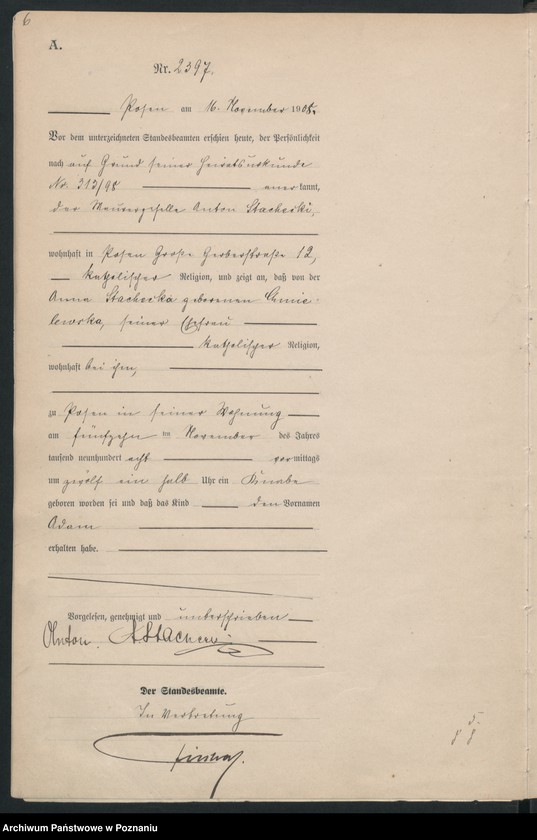 6
A.
Nr. 2397.
Posen am 16. November 1908.
Vor dem unterzeichneten Standesbeamten erschien heute, der Persönlichkeit
nach auf Grund seiner Heiratsurkunde
No. 313/98 anerkannt,
der Maurergeselle Anton Stachecki,
wohnhaft in Posen Große Gerberstraße 12,
katholischer Religion, und zeigt an, daß von der
Anna Stachecka geborenen Chmie-
lewska, seiner Ehefrau
katholischer Religion,
wohnhaft bei ihm,
zu Posen in seiner Wohnung
am fünfzehn ten November des Jahres
tausend neunhundert acht vormittags
um zwölf ein halb Uhr ein Knabe
geboren worden sei und daß das Kind den Vornamen
Adam
erhalten habe.
Vorgelesen, genehmigt und unterschrieben
Anton Stachecki
Der Standesbeamte.
In Vertretung
Archiwum Państwowe w Poznaniu